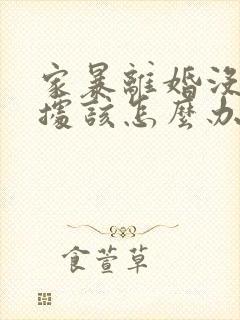 家暴離婚沒
據該怎麼办
食萱草